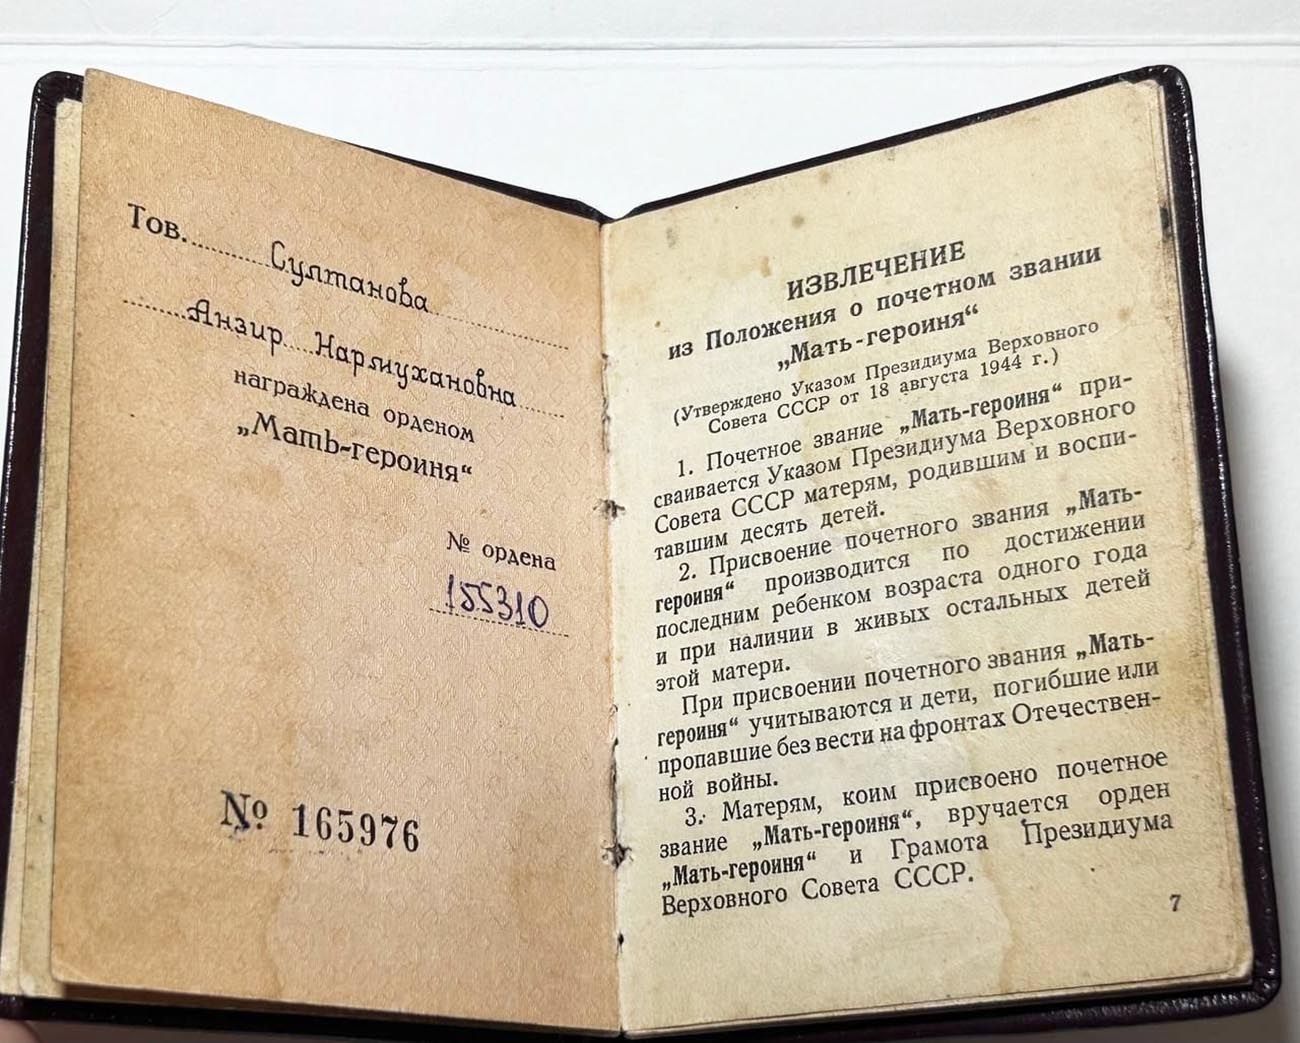 Тов. Султанова
Анзир Нармухановна
награждена орденом
„Мать-героиня“
№ ордена
155310
№ 165976
ИЗВЛЕЧЕНИЕ
из Положения о почетном звании
„Мать-героиня“
(Утверждено Указом Президиума Верховного
Совета СССР от 18 августа 1944 г.)
1. Почетное звание „Мать-героиня“ при-
сваивается Указом Президиума Верховного
Совета СССР матерям, родившим и воспи-
тавшим десять детей.
2. Присвоение почетного звания „Мать-
героиня“ производится по достижении
последним ребенком возраста одного года
и при наличии в живых остальных детей
этой матери.
При присвоении почетного звания „Мать-
героиня“ учитываются и дети, погибшие или
пропавшие без вести на фронтах Отечествен-
ной войны.
3. Матерям, коим присвоено почетное
звание „Мать-героиня“, вручается орден
„Мать-героиня“ и Грамота Президиума
Верховного Совета СССР.
7